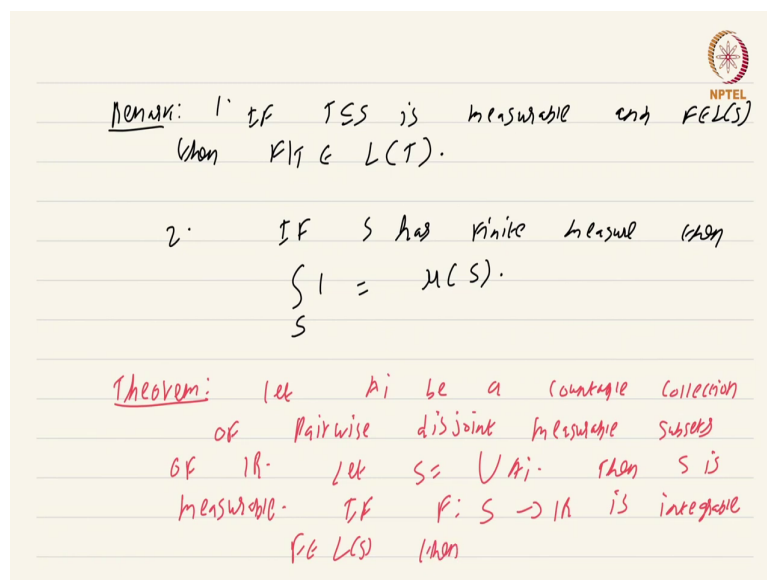 NPTEL
Remark: 1. IF T⊆S is measurable and F∈L(S)
then F|T ∈ L(T).
2. IF S has finite measure then
∫ 1 = μ(S).
S
Theorem: let Ai be a countable collection
OF pairwise disjoint measurable subsets
OF IR. Let S = ∪ Ai. Then S is
measurable. IF F: S → IR is integrable
F∈ L(S) then